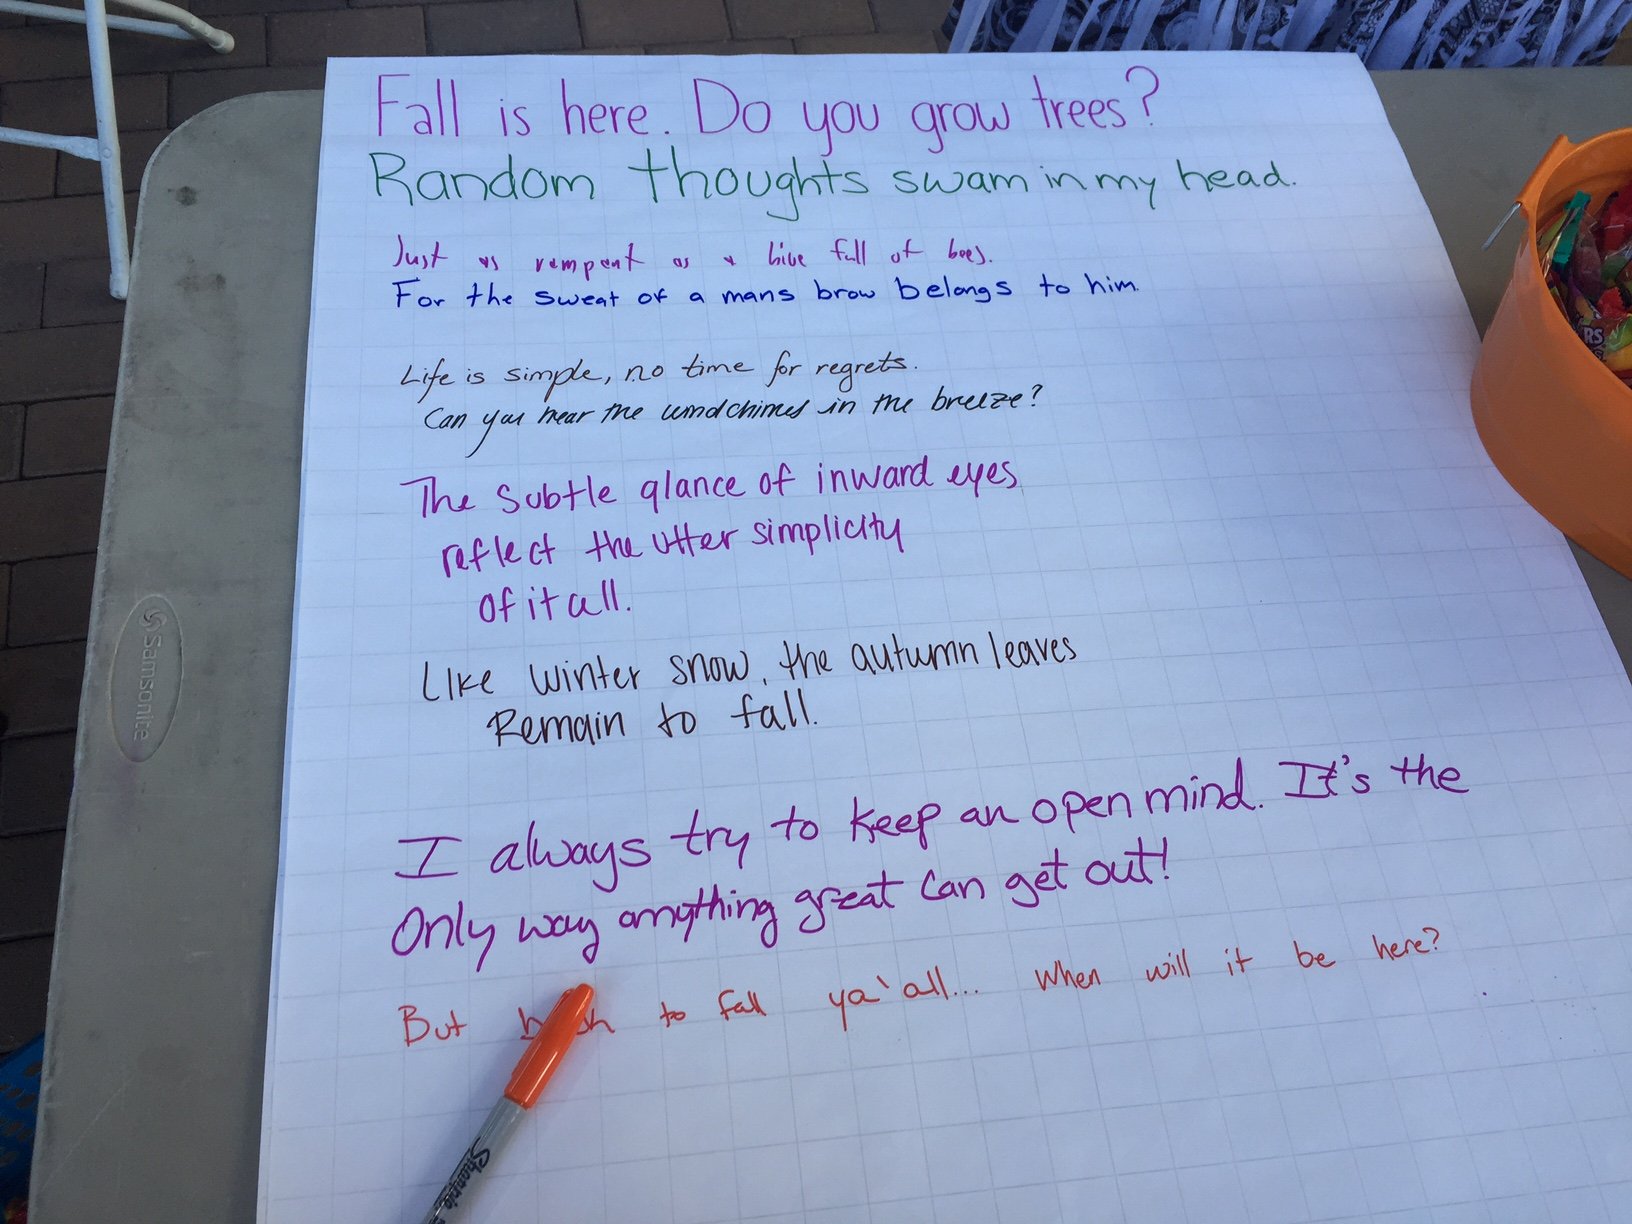 Fall is here. Do you grow trees?
Random thoughts swam in my head.
Just as rampant as a hive full of bees.
For the sweat of a mans brow belongs to him.
Life is simple, no time for regrets.
Can you hear the windchimes in the breeze?
The subtle glance of inward eyes
reflect the utter simplicity
of it all.
Like winter snow, the autumn leaves
Remain to fall.
I always try to keep an open mind. It's the
Only way anything great can get out!
But to fall ya'all... When will it be here?
Samsonite
Sharpie
RS